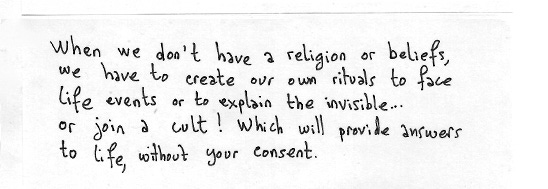 When we don't have a religion or beliefs,
we have to create our own rituals to face
life events or to explain the invisible...
or join a cult! Which will provide answers
to life, without your consent.